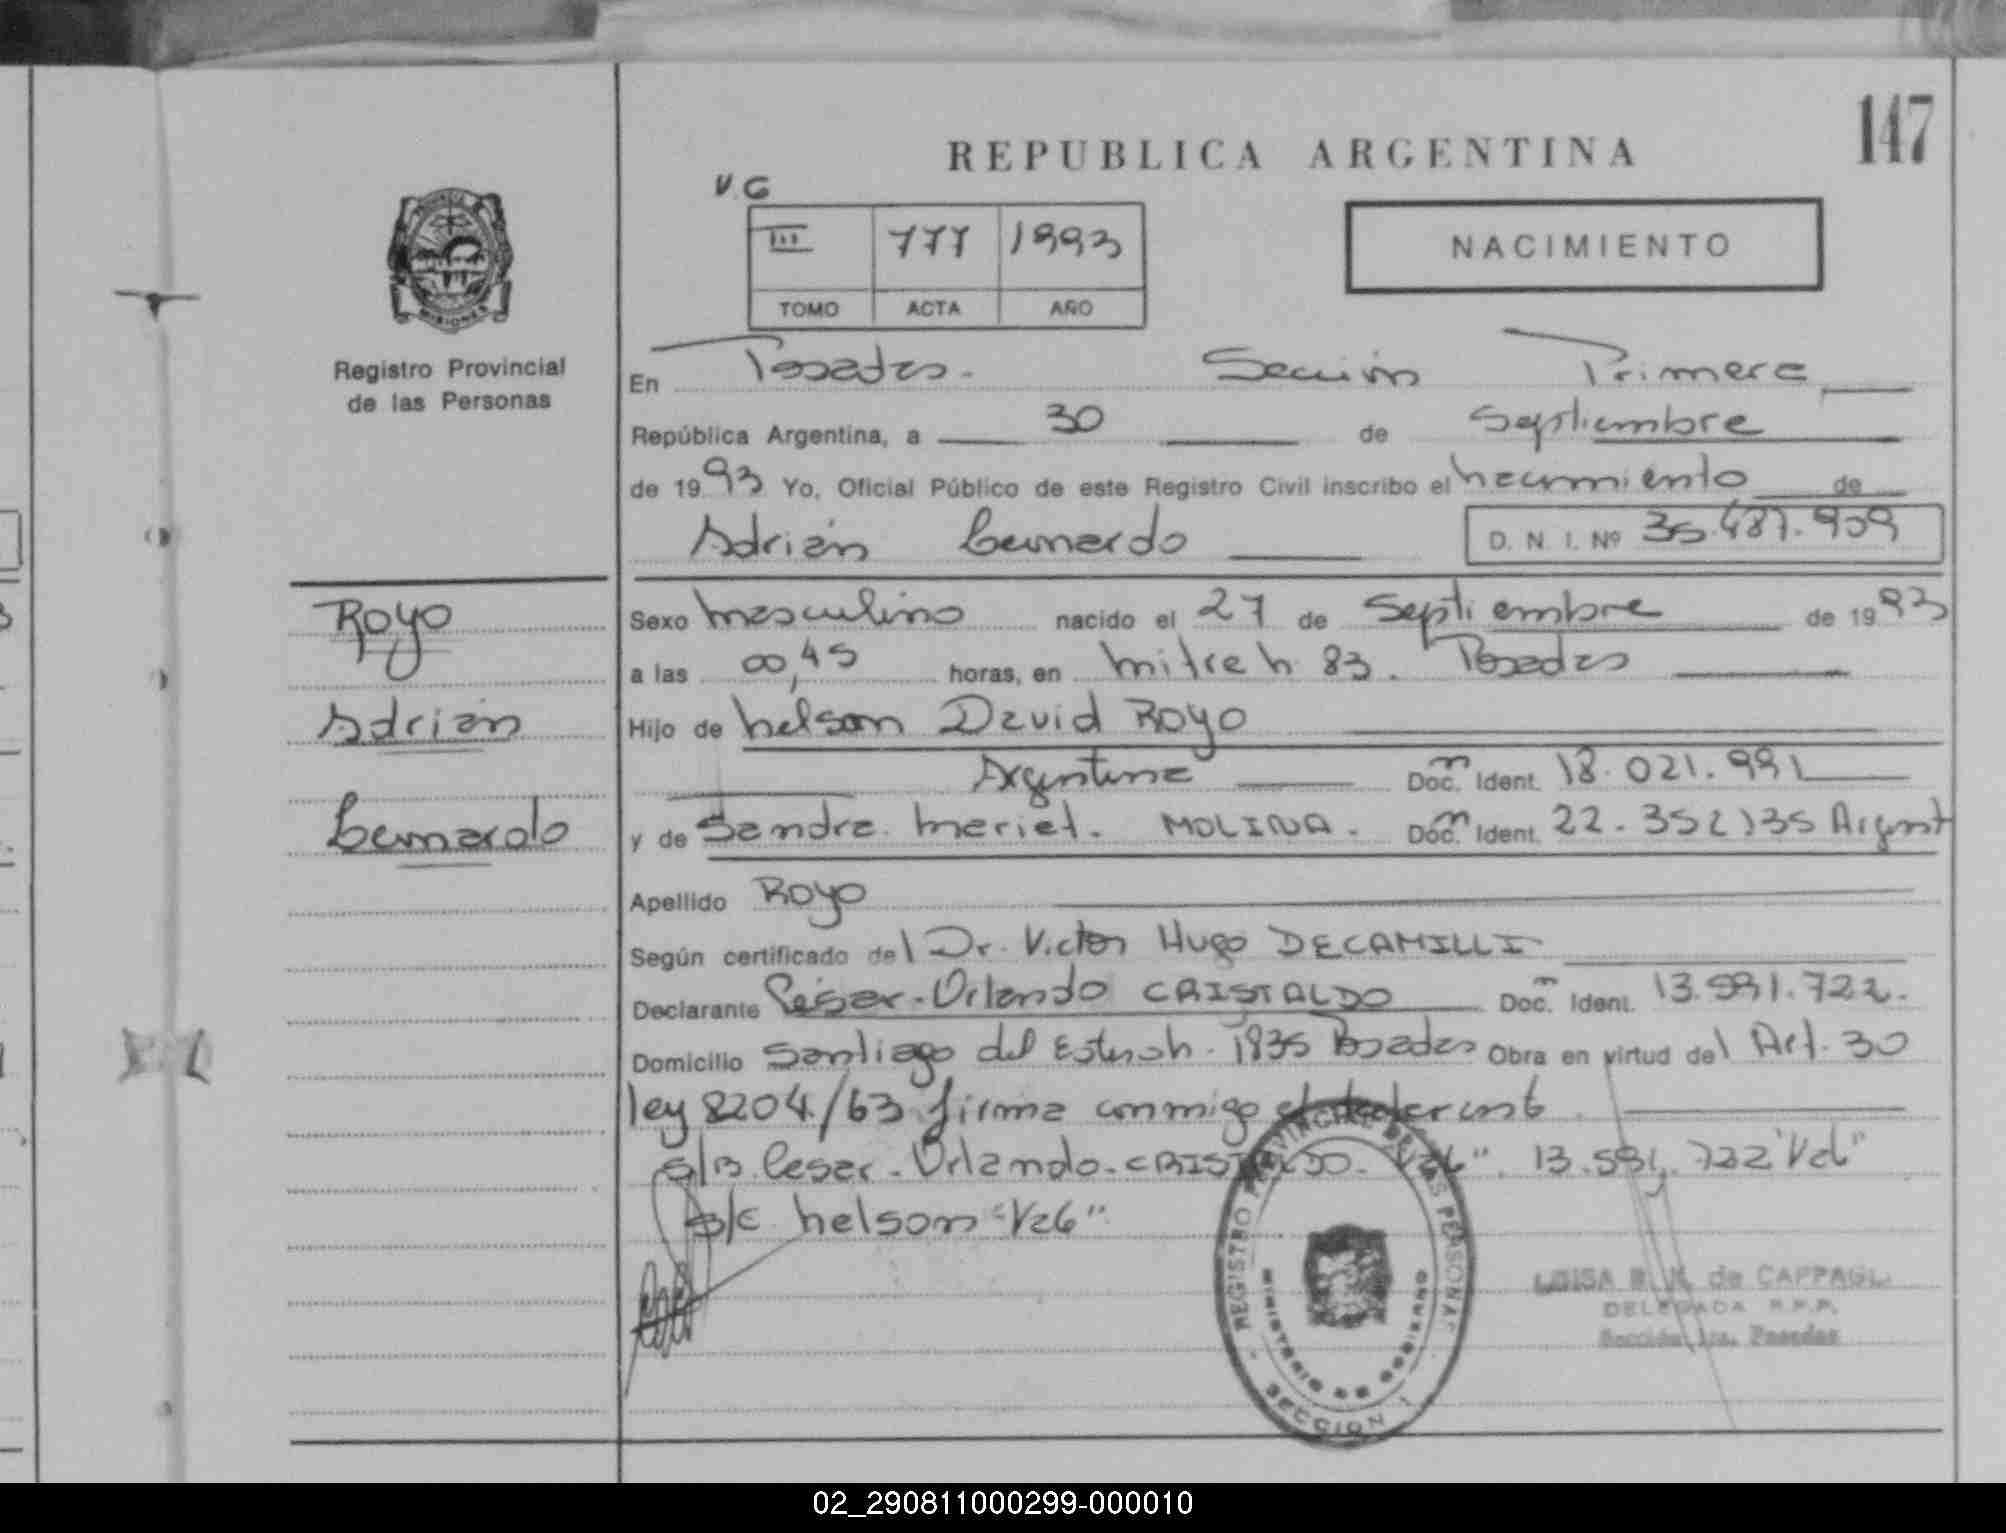 147
REPUBLICA ARGENTINA
V.G
III 777 1993
TOMO ACTA AÑO
NACIMIENTO
MISIONES
Registro Provincial
de las Personas
En Posadas. Sección Primera
República Argentina, a 30 de Septiembre
de 1993 Yo, Oficial Público de este Registro Civil inscribo el nacimiento de
Adrián Bernardo D. N. I. Nº 35.487.909
Royo
Adrián
Bernardo
Sexo masculino nacido el 27 de Septiembre de 1993
a las 00,45 horas, en Mitre n 83. Posadas
Hijo de Nelson David Royo
Argentina Doc. Ident. 18.021.991
y de Sandra Mariel. MOLINA. Doc. Ident. 22.352135 Argent
Apellido Royo
Según certificado del Dr. Victor Hugo DECAMILLI
Declarante Cesar. Orlando CRISTALDO Doc. Ident. 13.591.722.
Domicilio Santiago del Estero n. 1835 Posadas Obra en virtud del Art. 30
ley 8204/63 firma conmigo el declarante
s/b Cesar. Orlando. CRISTALDO. "Vale". 13.591.722 "Vale"
s/c Nelson "Vale"
REGISTRO PROVINCIAL DE LAS PERSONAS
MINISTERIO DE GOBIERNO
SECCION 1
LUISA de CAPPAGLI
DELEGADA R.P.P.
Sección 1ra. Posadas
02_290811000299-000010